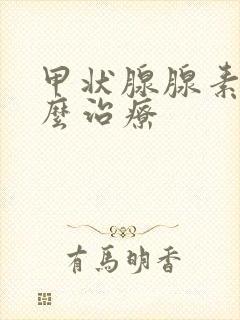 甲状腺腺素
麼治療
有馬明香